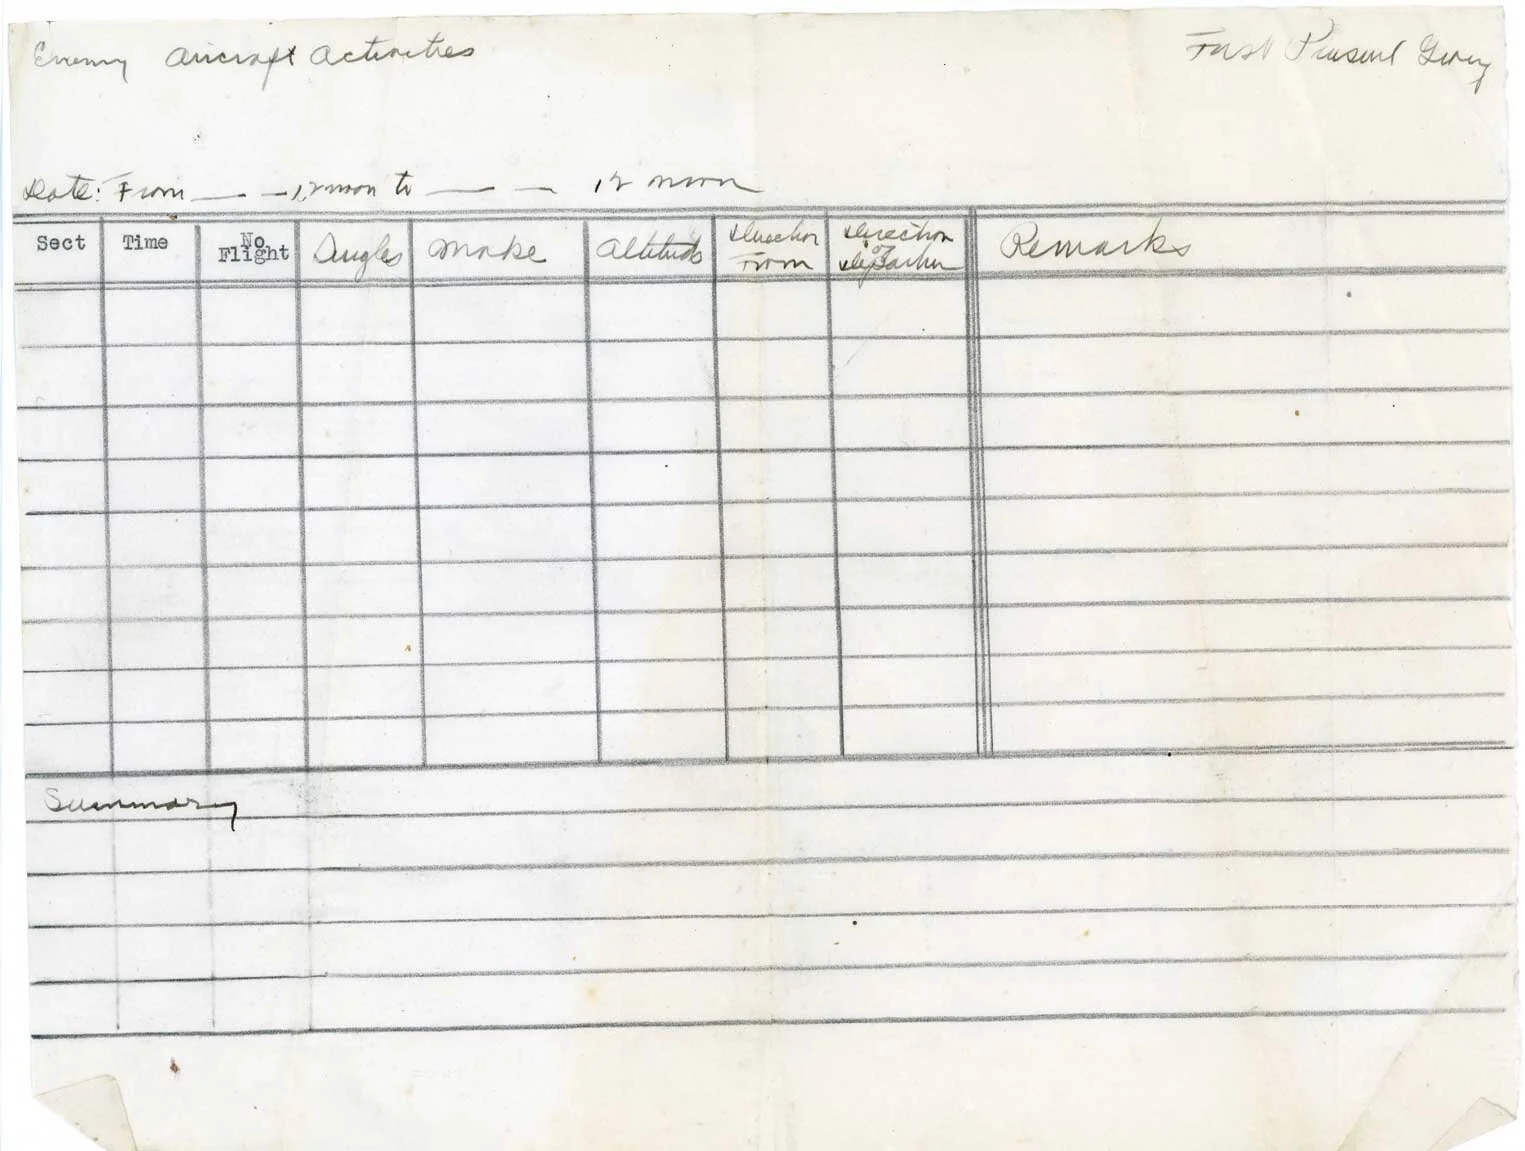 Enemy Aircraft Activities
First Pursuit Group
Date: From — — 12 noon to — — 12 noon
Sect Time No Flight Angles Make Altitude Direction From Direction of Departure Remarks
Summary